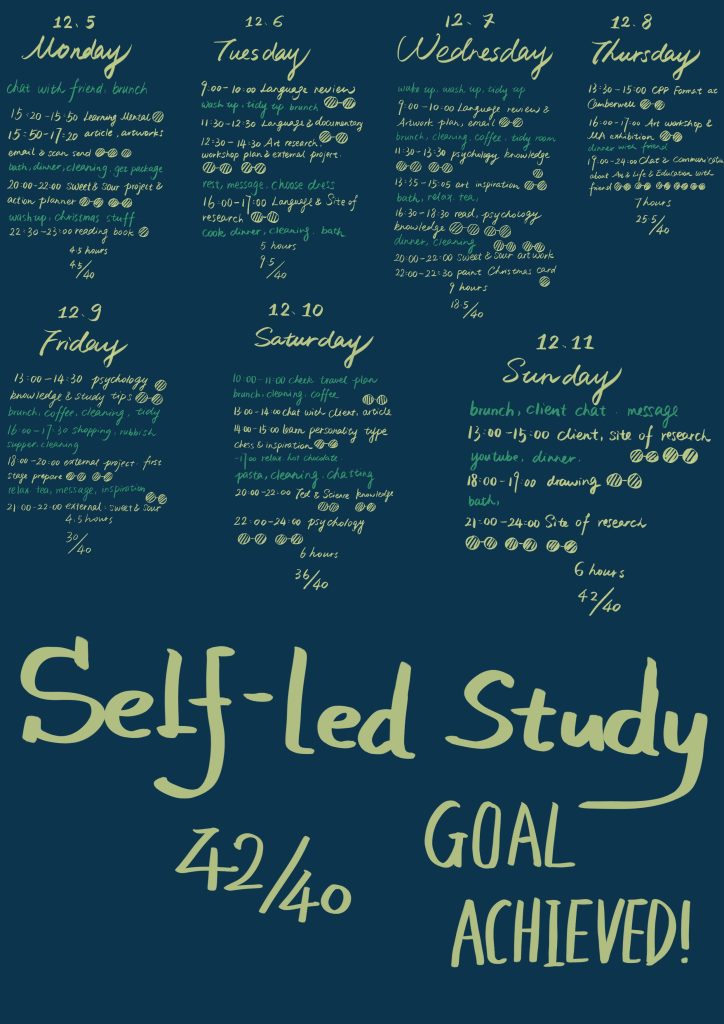 12.5
Monday
chat with friend, brunch
15:20-15:50 Learning Mental
15:50-17:20 article, artworks
email & scan send
bath, dinner, cleaning, get package
20:00-22:00 Sweet & Sour project &
action planner
wash up, christmas stuff
22:30-23:00 reading book
4.5 hours
4.5/40
12.6
Tuesday
9:00-10:00 Language review
wash up, tidy up brunch
11:30-12:30 Language & documentary
12:30-14:30 Art research
workshop plan & external project.
rest, message, choose dress
16:00-17:00 Language & Site of
research
cook, dinner, cleaning, bath
5 hours
9.5/40
12.7
Wednesday
wake up, wash up, tidy up
9:00-10:00 Language review &
Artwork plan, email
brunch, cleaning, coffee, tidy room
11:30-13:30 psychology knowledge
13:35-15:05 art inspiration
bath, relax, tea,
16:30-18:30 read, psychology
knowledge
dinner, cleaning
20:00-22:00 Sweet & Sour art work
22:00-22:30 paint Christmas card
9 hours
18.5/40
12.8
Thursday
13:30-15:00 CPP Format at
Camberwell
16:00-17:00 Art workshop &
MA exhibition
dinner with friend
19:00-24:00 Chat & Communication
about Art & Life & Education with
friend
7 hours
25.5/40
12.9
Friday
13:00-14:30 psychology
knowledge & study tips
brunch, coffee, cleaning, tidy
16:00-17:30 shopping, rubbish
supper, cleaning
18:00-20:00 external project. first
stage prepare
relax tea, message, inspiration
21:00-22:00 external. Sweet & Sour
4.5 hours
30/40
12.10
Saturday
10:00-11:00 check travel plan
brunch, cleaning, coffee
13:00-14:00 chat with client, article
14:00-15:00 learn personality type
chess & inspiration
-17:00 relax. hot chocolate.
pasta, cleaning, chatting
20:00-22:00 Ted & Science knowledge
22:00-24:00 psychology
6 hours
36/40
12.11
Sunday
brunch, client chat. message
13:00-15:00 client, site of research
youtube, dinner.
18:00-19:00 drawing
bath,
21:00-24:00 Site of research
6 hours
42/40
Self-led Study
42/40
GOAL
ACHIEVED!